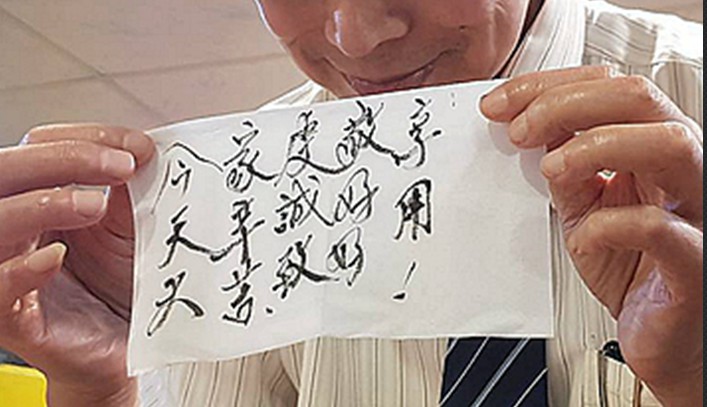 今天大
家辛苦.
虔誠致
敬好好
享用!